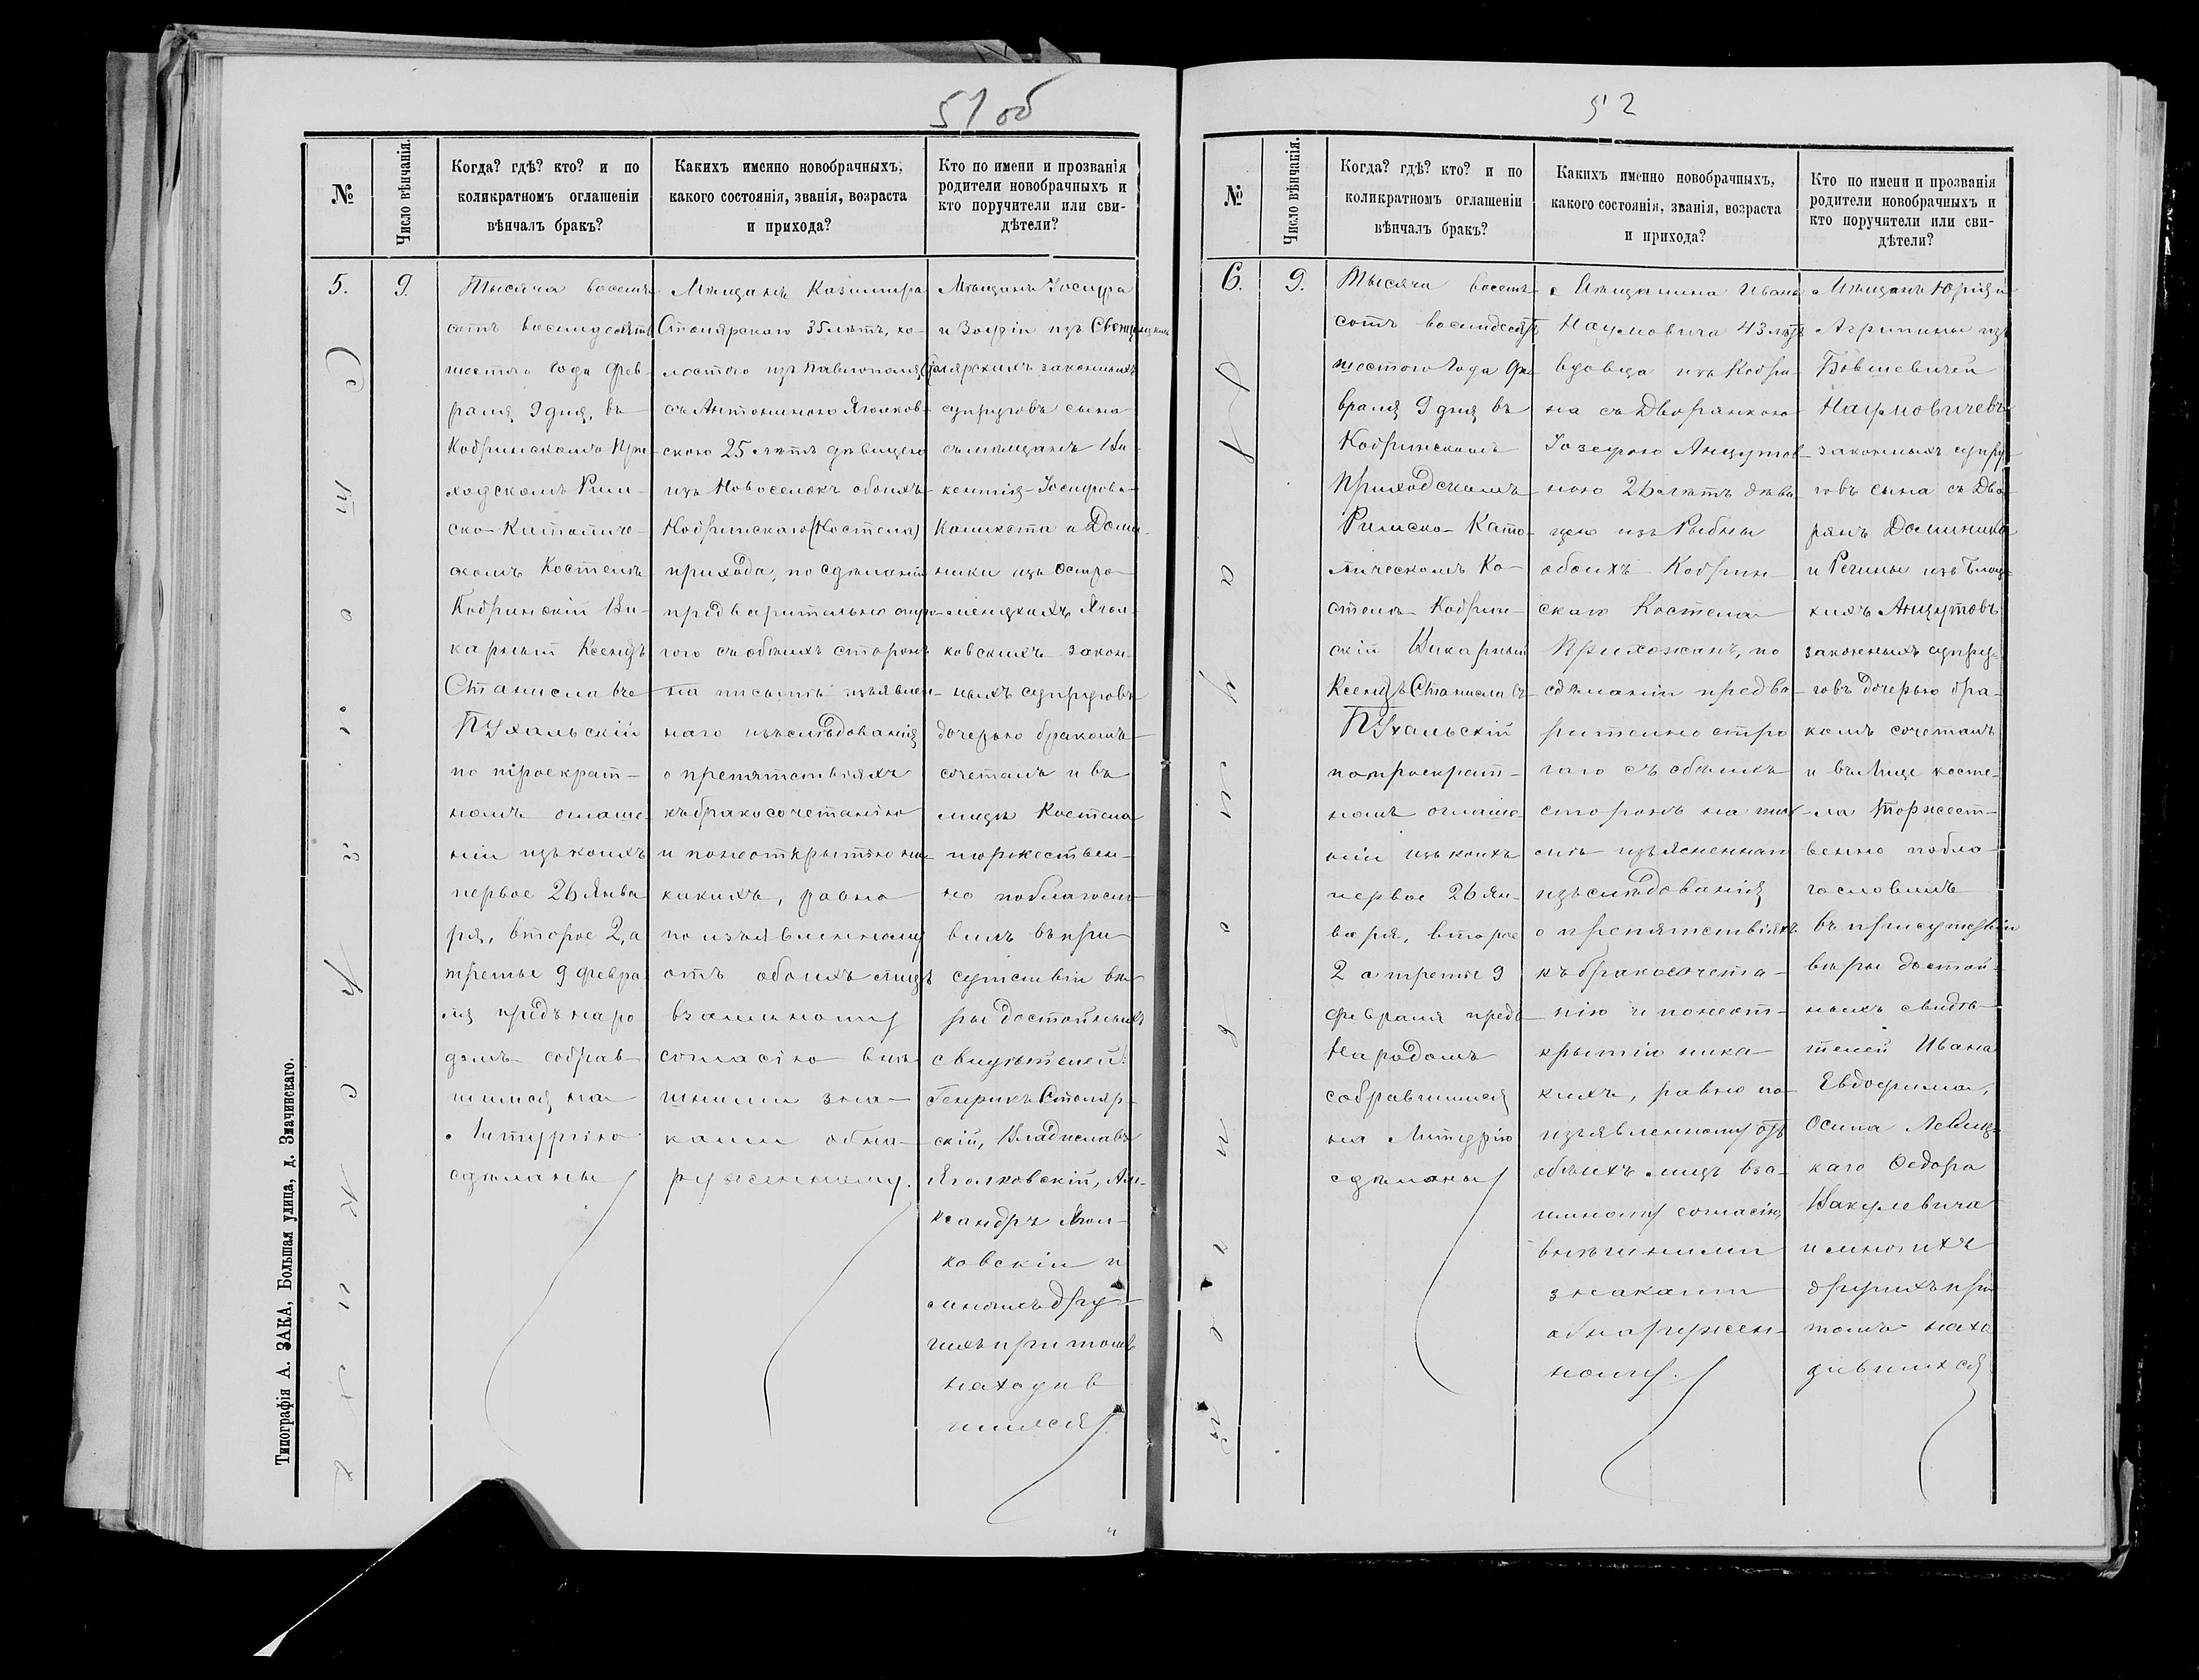 51 об
№
Число вѣнчанія.
Когда? гдѣ? кто? и по
коликратномъ оглашеніи
вѣнчалъ бракъ?
Какихъ именно новобрачныхъ,
какого состоянія, званія, возраста
и прихода?
Кто по имени и прозванія
родители новобрачныхъ и
кто поручители или сви-
дѣтели?
5.
9.
Тысяча восемь
сотъ восмидесятъ
шестого года Фев-
раля 9 дня, въ
Кобринскомъ При-
ходскомъ Рим-
ско-Католиче-
скомъ Костелѣ
Кобринскій Ви-
карный Ксендзъ
Станиславъ
Пухальскій
по троекрат-
номъ оглаше-
ніи изъ коихъ
первое 26 Янва
ря, второе 2, а
третье 9 февра
ля предъ наро
домъ собрав
шимся на
Литургію
сдѣланы
Мѣщанъ Казимира
Столярскаго 35 лѣтъ, хо-
лостого изъ Павлополя,
съ Антониною Яголков-
скою 25 лѣтъ дѣвицею
изъ Новоселокъ обоихъ
Кобринскаго (Костела)
прихода, по сдѣланіи
предварительно стро-
гого съ обѣихъ сторонъ
на письмѣ изъявлен-
наго изъслѣдованія
о препятствіяхъ
къ бракосочетанію
и по неоткрытію ни-
какихъ, равно
по изъявленному
отъ обоихъ лицъ
взаимному
согласію внѣ-
шними зна-
ками обна-
руженному.
Мѣщанъ Іосифа
и Зофіи изъ Свенцицкихъ
Столярскихъ законныхъ
супруговъ сына
съ мѣщанъ Ви-
кентія-Іосифова-
Каликста и Доми-
ники изъ Остро-
менцкихъ Ягол-
ковскихъ закон-
ныхъ супруговъ
дочерью бракомъ
сочеталъ и въ
лицѣ Костела
торжествен-
но поблагосло-
вилъ въ при-
сутствіи вѣ-
ры достойныхъ
свидѣтелей:
Генрикъ Столяр-
скій, Владиславъ
Яголковскій, Але-
ксандръ Ягол-
ковскій и
многихъ дру-
гихъ при томъ
находив
шихся
Столярскій
Типографія А. ЗАКА, Большая улица, д. Значинскаго.
52
№
Число вѣнчанія.
Когда? гдѣ? кто? и по
коликратномъ оглашеніи
вѣнчалъ бракъ?
Какихъ именно новобрачныхъ,
какого состоянія, званія, возраста
и прихода?
Кто по имени и прозванія
родители новобрачныхъ и
кто поручители или сви-
дѣтели?
6.
9.
Тысяча восемь-
сотъ восмидесятъ
шестого года Фе-
враля 9 дня въ
Кобринскомъ
Приходскомъ
Римско-Като-
лическомъ Ко-
стелѣ Кобрин-
скій Викарный
Ксендзъ Станиславъ
Пухальскій
по троекрат-
номъ оглаше-
ніи изъ коихъ
первое 26 Ян-
варя, второе
2 а третье 9
февраля предъ
народомъ
собравшимся
на Литургію
сдѣланы
Мѣщанина Ивана
Наумовича 43 лѣтъ
вдовца изъ Кобри-
на съ Дворянкою
Іозефою Анцутов-
ною 26 лѣтъ дѣви
цею изъ Рыбны
обоихъ Кобрин-
скаго Костела
Прихожанъ, по
сдѣланіи предва-
рительно стро
гого съ обѣихъ
сторонъ на пис-
мѣ изъясненнаго
изъслѣдованія
о препятствіяхъ
къ бракосочета-
нію и по неот-
крытію ника-
кихъ, равно по
изъявленному отъ
обѣихъ лицъ вза-
имному согласію,
внѣшними
знаками
обнаружен-
ному.
Мѣщанъ Юрія и
Агрипины изъ
Наумовичевъ
законныхъ супру-
говъ сына съ Дво-
рянъ Доминика
и Регины изъ
Анцутовъ
законныхъ супру-
говъ дочерью бра-
комъ сочеталъ
и въ лице косте-
ла торжест-
венно побла-
гословилъ
въ присутствіи
вѣры достой-
ныхъ свидѣ-
телей Ивана
Евдокима,
Осипа Левиц-
каго Федора
Вакулевича
и многихъ
другихъ при
томъ нахо
дившихся